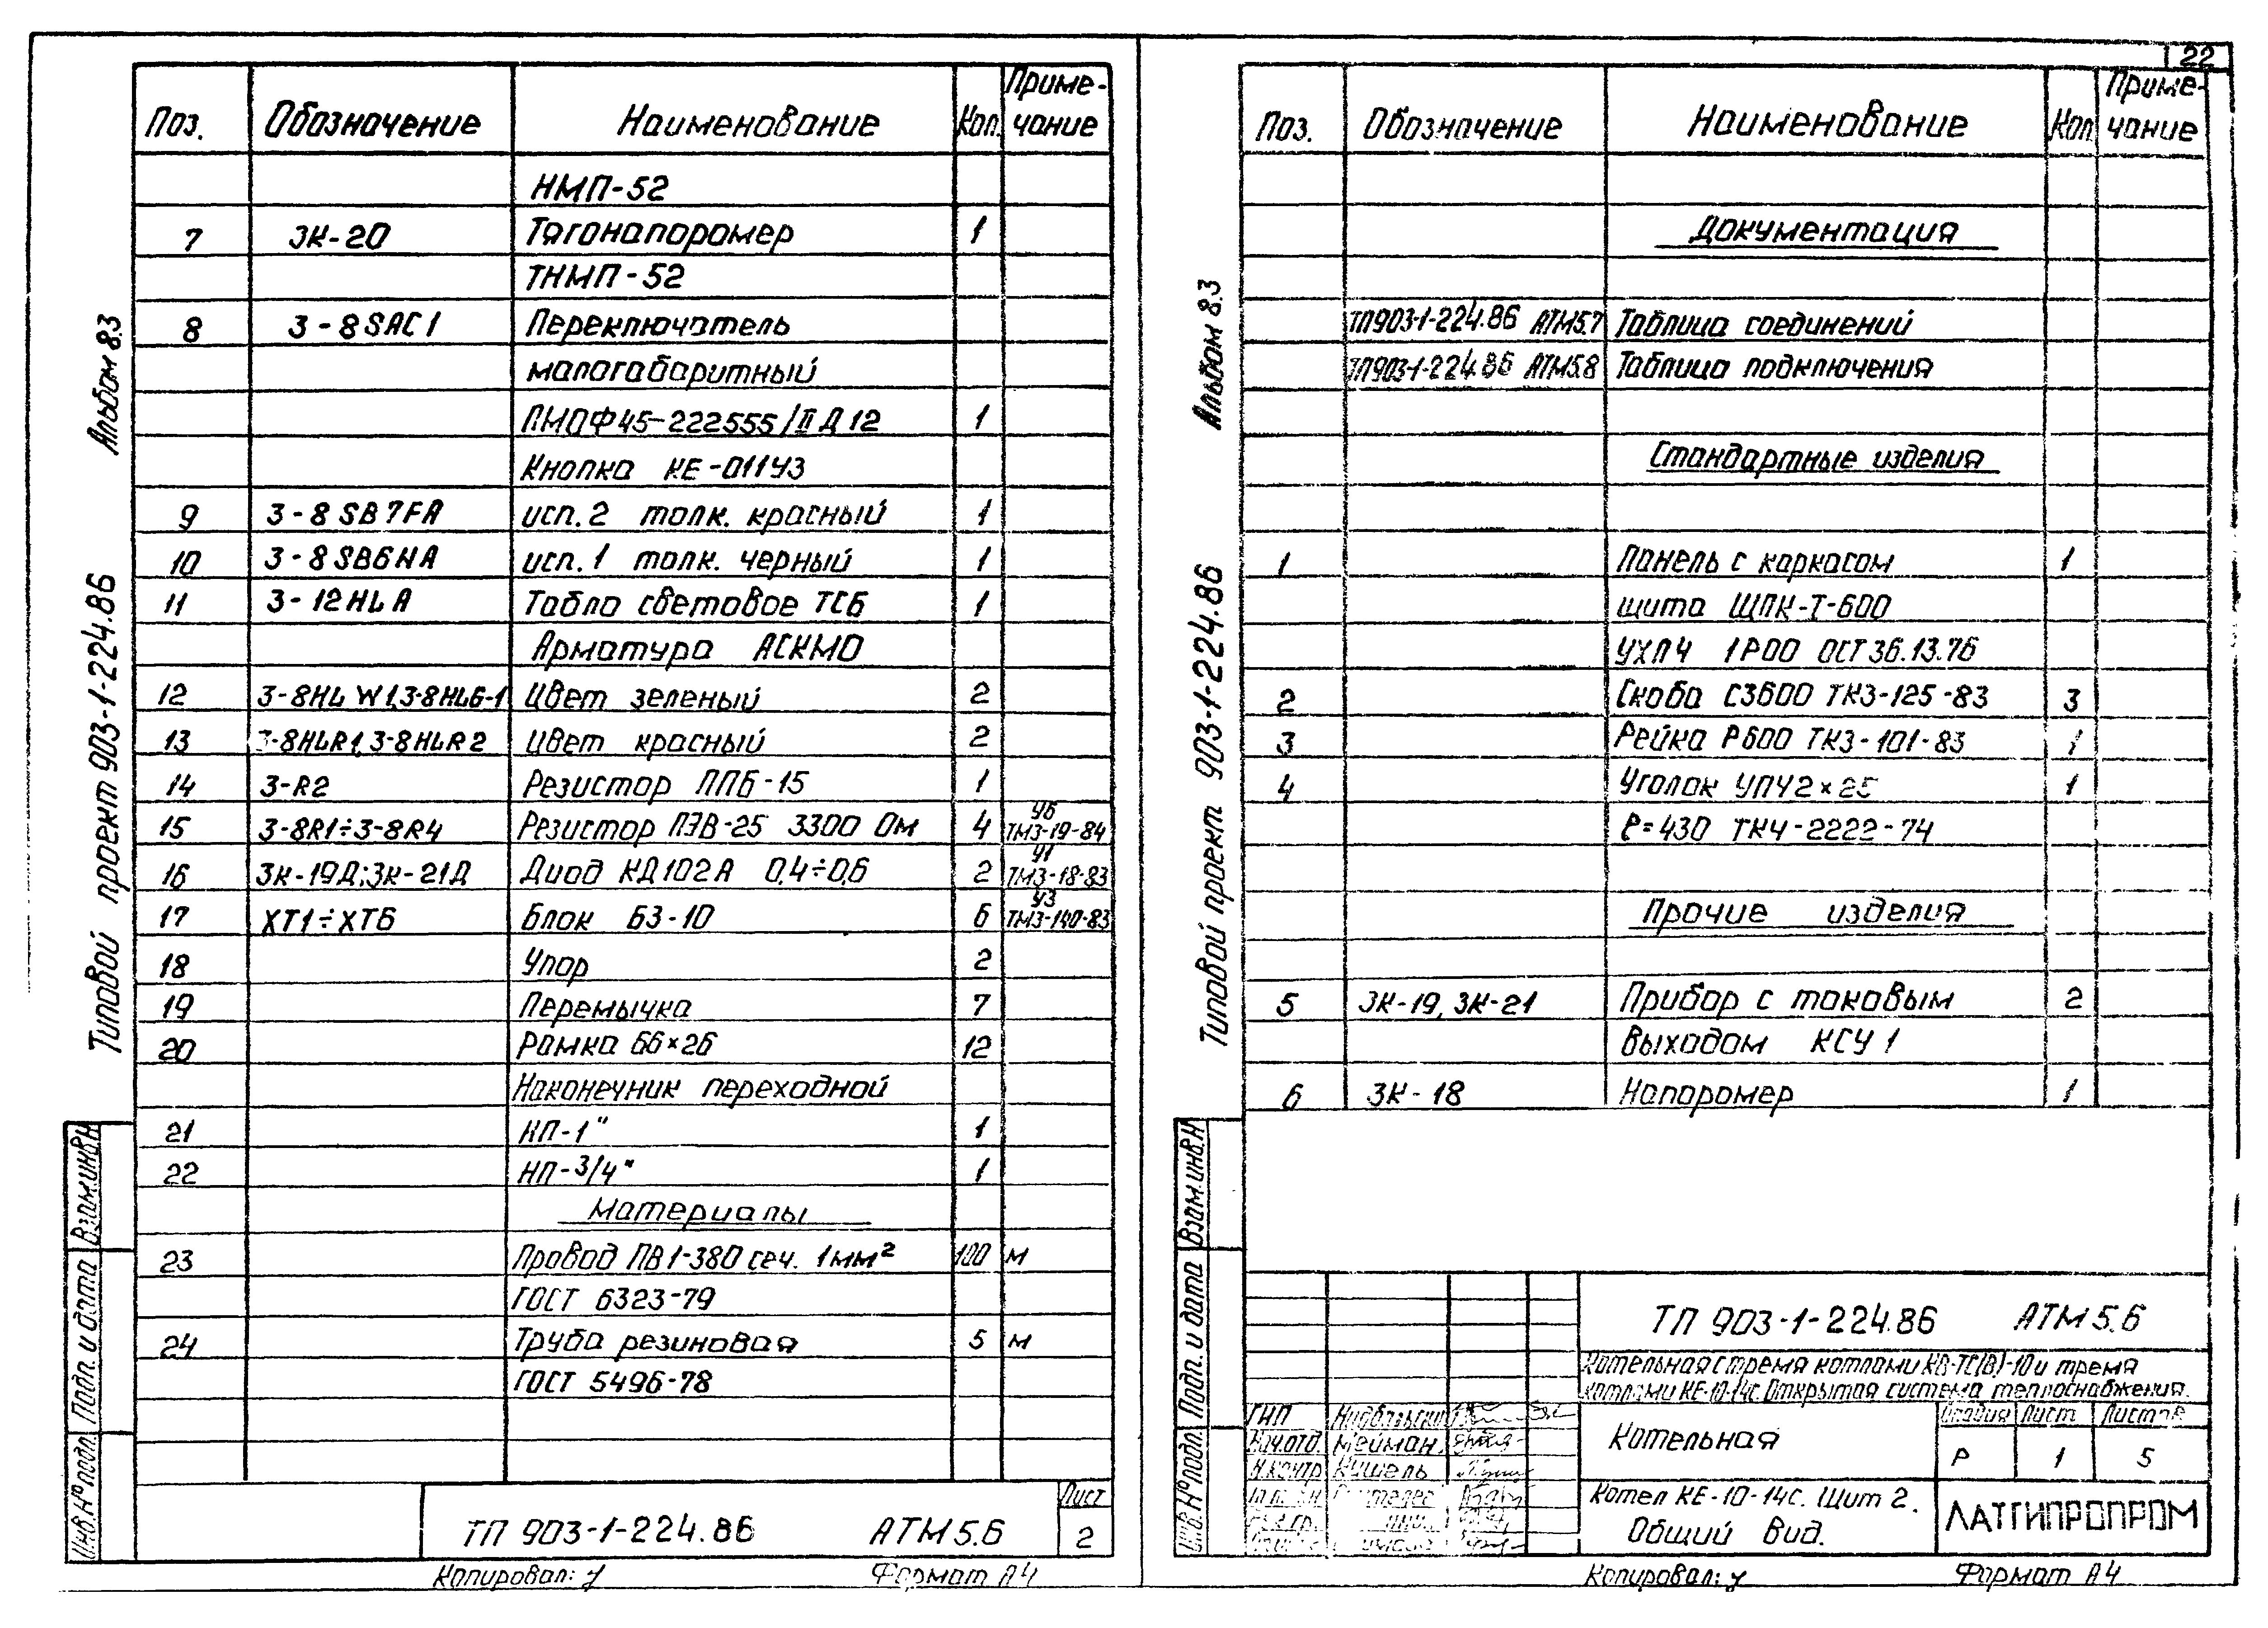 22
Альбом 8.3
Типовой проект 903-1-224.86
Взам.инв.Н
Подп. и дата
Инв.Н°подл.
Поз. Обозначение Наименование Кол. Приме-
чание
НМП-52
7 3К-20 Тягонапоромер 1
ТНМП-52
8 3-8SAC1 Переключатель
малогабаритный
ПМОФ45-222555/II Д12 1
Кнопка КЕ-011У3
9 3-8SB7FA исп.2 толк. красный 1
10 3-8SB6HA исп.1 толк. черный 1
11 3-12HLA Табло световое ТСБ 1
Арматура АСКМО
12 3-8HLW1,3-8HLG-1 Цвет зеленый 2
13 3-8HLR1,3-8HLR2 Цвет красный 2
14 3-R2 Резистор ППБ-15 1
15 3-8R1÷3-8R4 Резистор ПЭВ-25 3300 Ом 4 У6
ТМ3-19-84
16 3К-19Д;3К-21Д Диод КД102А 0,4÷0,6 2 У1
ТМ3-18-83
17 ХТ1÷ХТ6 Блок БЗ-10 6 У3
ТМ3-140-83
18 Упор 2
19 Перемычка 7
20 Рамка 66×26 12
Наконечник переходной
21 НП-1" 1
22 НП-3/4" 1
Материалы
23 Провод ПВ1-380 сеч. 1мм² 100 м
ГОСТ 6323-79
24 Труба резиновая 5 м
ГОСТ 5496-78
ТП 903-1-224.86 АТМ5.6
Лист
2
Копировал:
Формат А4
Альбом 8.3
Типовой проект 903-1-224.86
Взам.инв.Н
Подп. и дата
Инв.Н°подл.
Поз. Обозначение Наименование Кол Приме-
чание
Документация
ТП903-1-224.86 АТМ5.7 Таблица соединений
ТП903-1-224.86 АТМ5.8 Таблица подключения
Стандартные изделия
1 Панель с каркасом 1
щита ЩПК-I-600
УХЛ4 1Р00 ОСТ36.13.76
2 Скоба С3600 ТК3-125-83 3
3 Рейка Р600 ТК3-101-83 1
4 Уголок УП42×25 1
ℓ=430 ТК4-2222-74
Прочие изделия
5 3К-19, 3К-21 Прибор с токовым 2
выходом КСУ1
6 3К-18 Напоромер 1
ТП 903-1-224.86 АТМ5.6
Котельная с тремя котлами КВ-ТС(В)-10 и тремя
котлами КЕ-10-14с. Открытая система теплоснабжения.
ГИП
Нач.отд. Мейман.
Н.контр Кушель
Котельная
Стадия Лист Листов
Р 1 5
Котел КЕ-10-14с. Щит 2.
Общий вид.
ЛАТГИПРОПРОМ
Копировал:
Формат А4